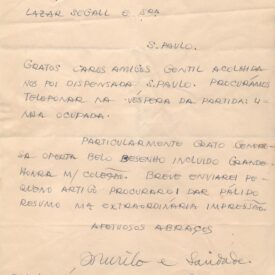 LAZAR SEGALL E SRA
S. PAULO.
GRATOS CAROS AMIGOS GENTIL ACOLHIDA
NOS FOI DISPENSADA S. PAULO. PROCURÁMOS
TELEFONAR NA VÉSPERA DA PARTIDA: LI-
NHA OCUPADA.
PARTICULARMENTE GRATO GENERO-
SA OFERTA BELO DESENHO INCLUIDO GRANDE
HONRA M/ COLEÇÃO. BREVE ENVIAREI PE-
QUENO ARTIGO PROCURAREI DAR PÁLIDO
RESUMO MA EXTRAORDINÁRIA IMPRESSÃO.
AFETUOSOS ABRAÇOS
Murilo e Saudade.